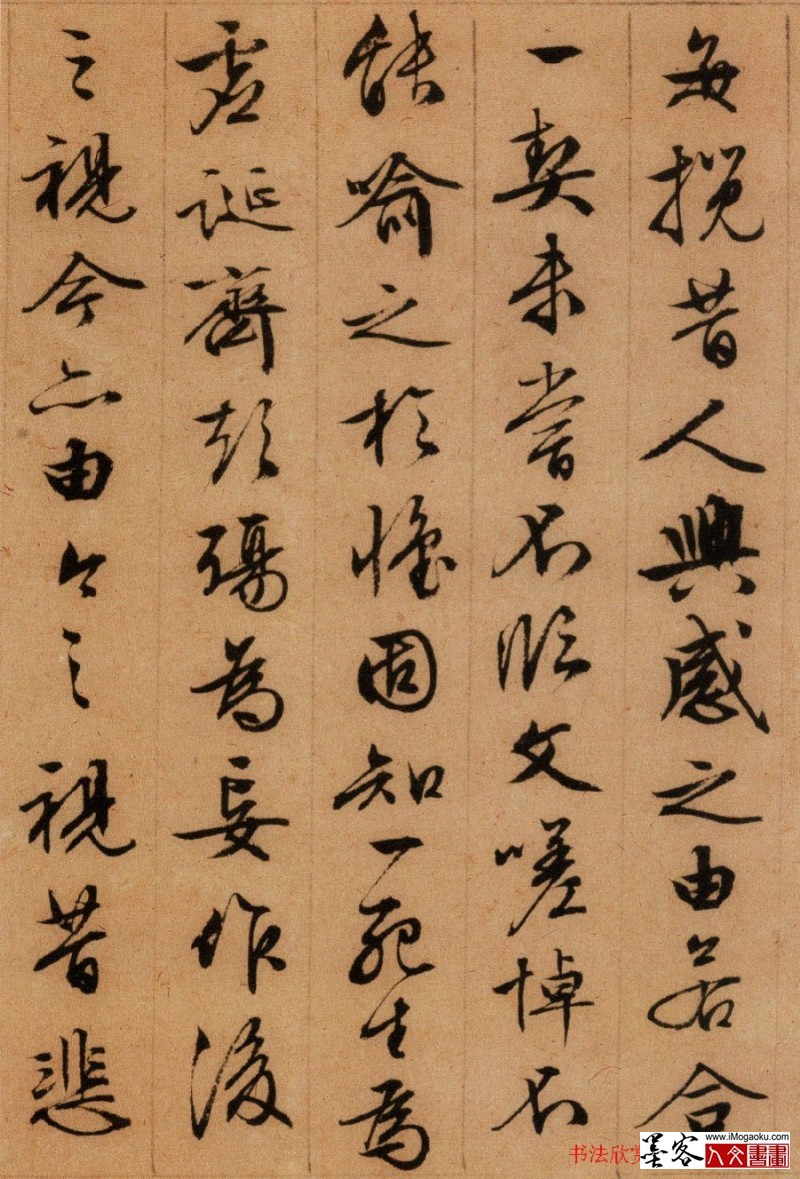 每揽昔人興感之由若合
一契未嘗不臨文嗟悼不
能喻之於懷固知一死生為
虛誕齊彭殤為妄作後
之視今亦由今之視昔悲
书法欣赏
墨客
www.iMogaoku.com
人文書畫